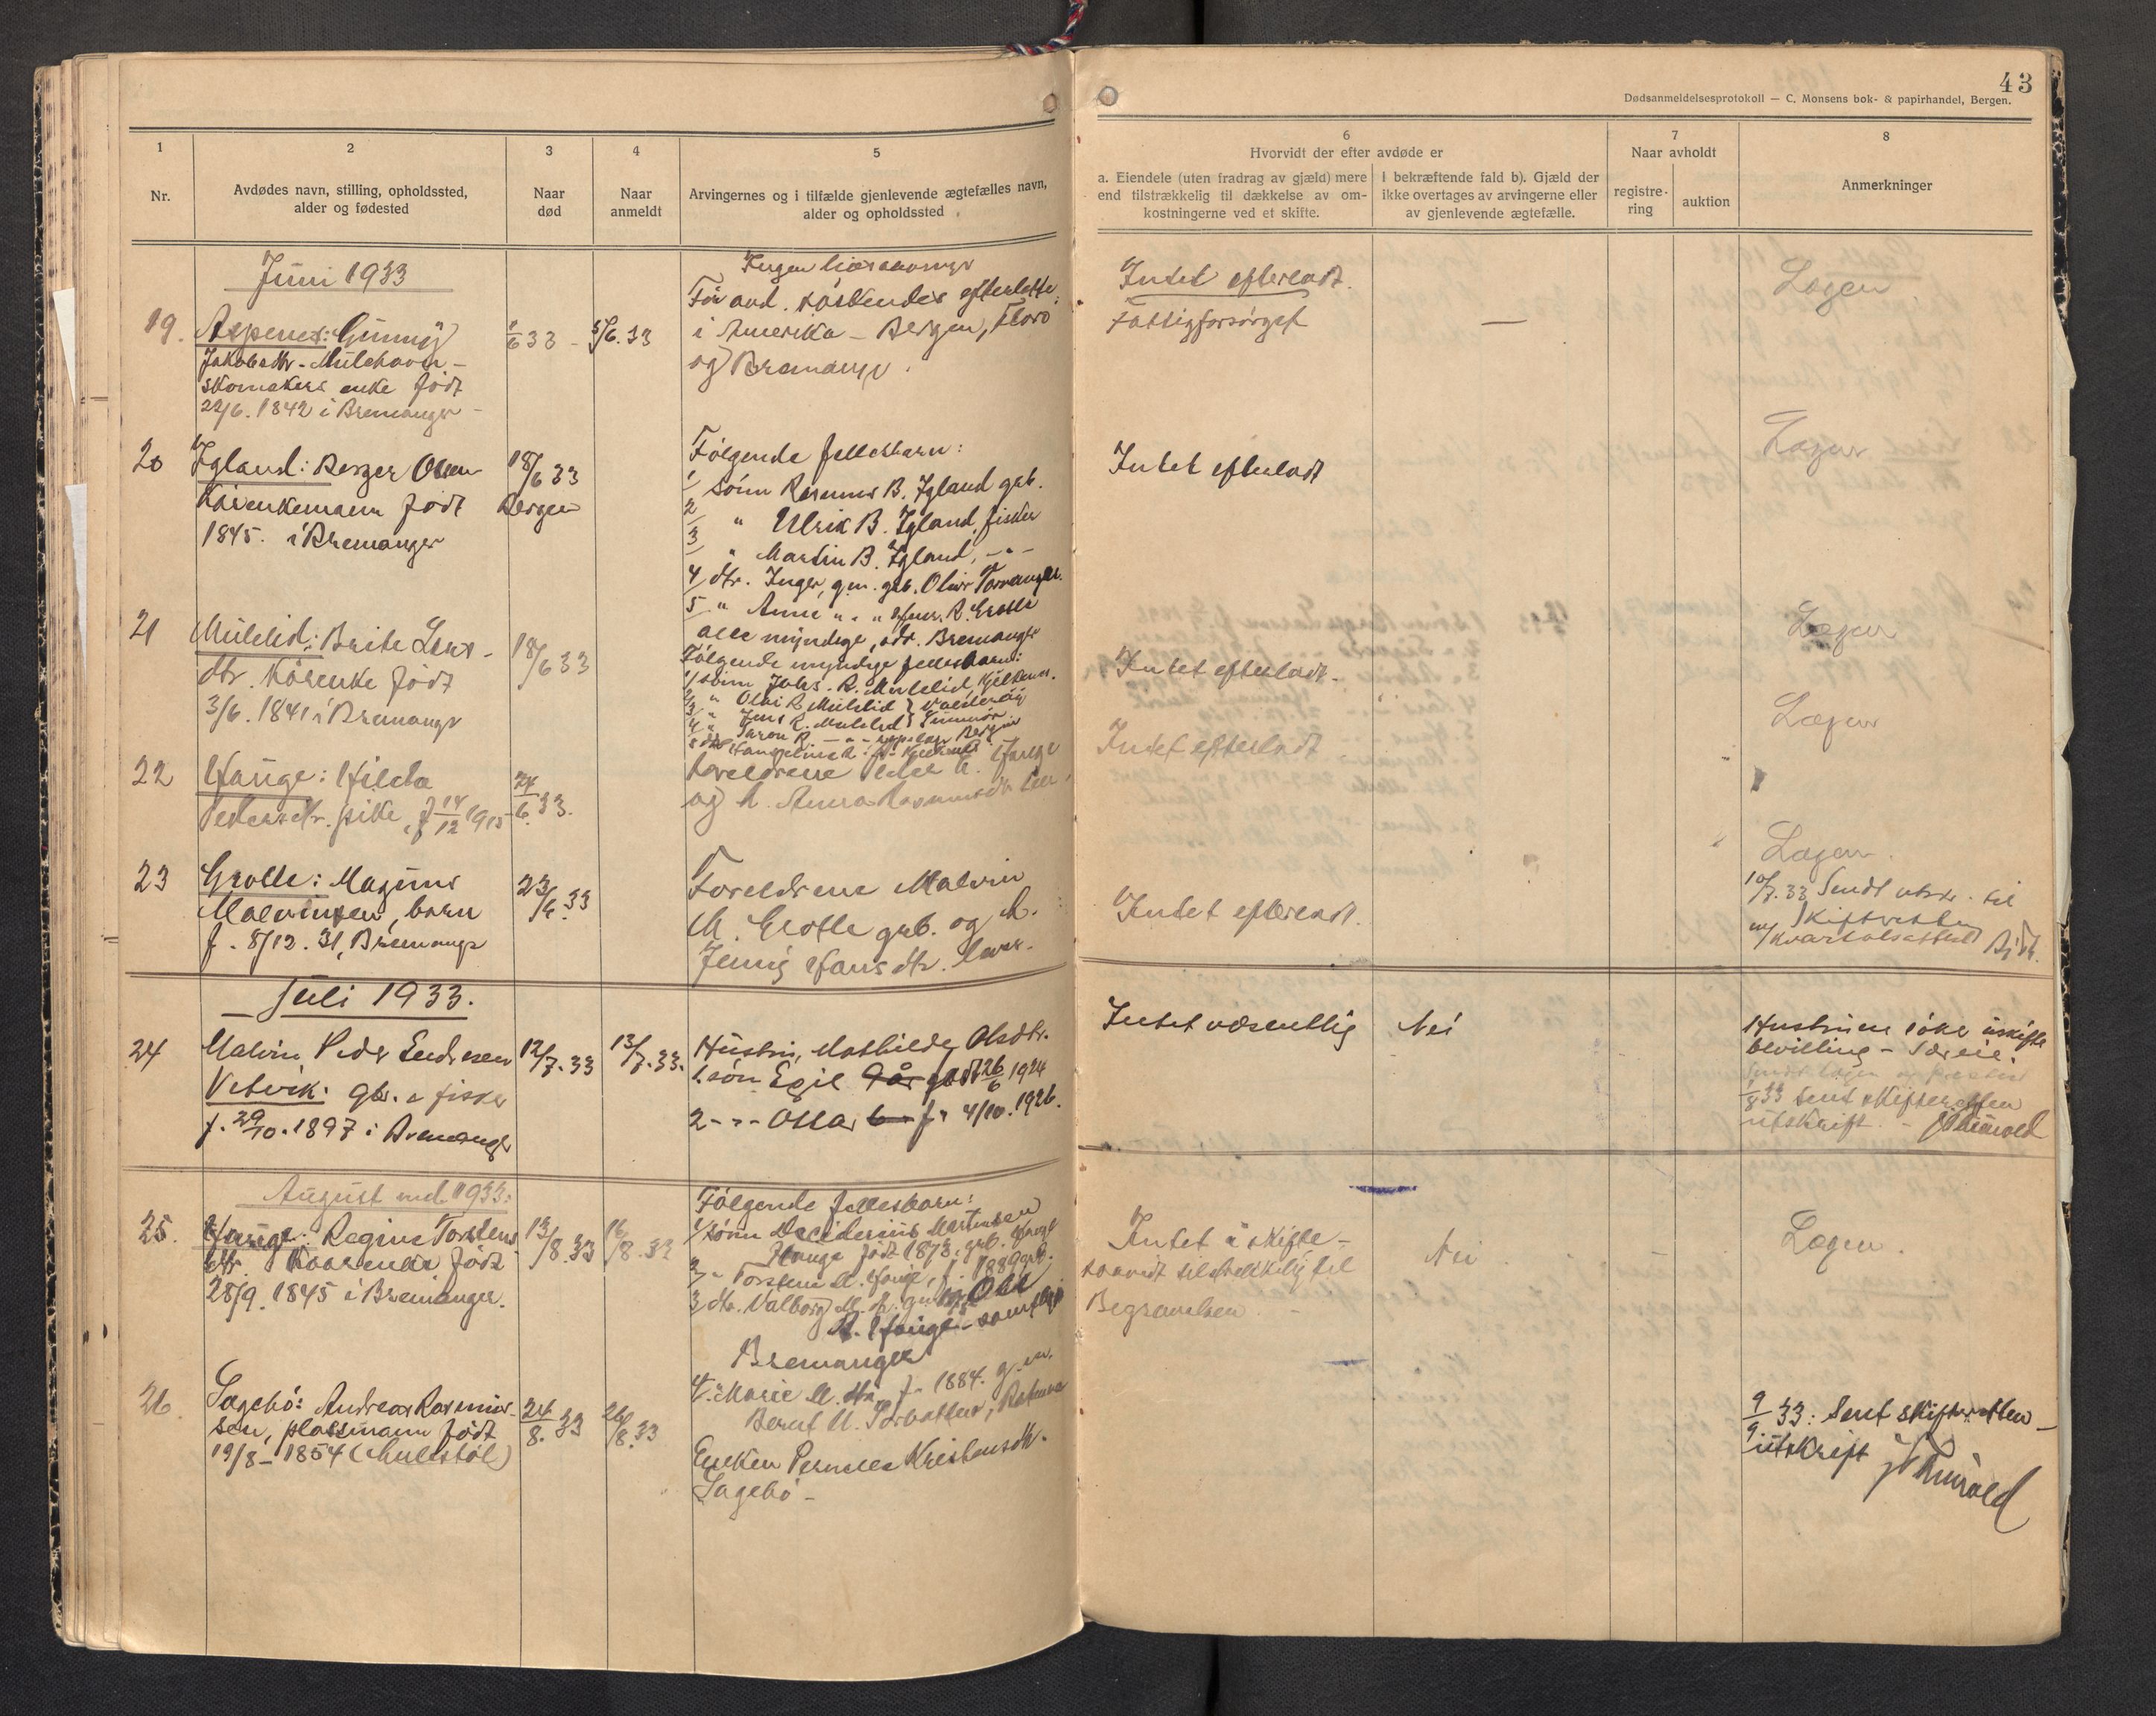 43
Dødsanmeldelsesprotokoll — C. Monsens bok- & papirhandel, Bergen.
1
Nr.
2
Avdødes navn, stilling, opholdssted,
alder og fødested
3
Naar
død
4
Naar
anmeldt
5
Arvingernes og i tilfælde gjenlevende ægtefælles navn,
alder og opholdssted
6
Hvorvidt der efter avdøde er
a. Eiendele (uten fradrag av gjæld) mere
end tilstrækkelig til dækkelse av om-
kostningerne ved et skifte.
I bekræftende fald b). Gjæld der
ikke overtages av arvingerne eller
av gjenlevende ægtefælle.
7
Naar avholdt
registre-
ring
auktion
8
Anmerkninger
Juni 1933
19.
Aspenes: Gunny
Jakobsdtr. - Mulehavn -
skomakers enke født
22/6. 1842 i Bremanger -
1/6 33 -
5/6. 33
Ingen livsarvinger
For avd. søskendes efterlatte:
i Amerika - Bergen, Florø
og Bremanger.
Intet efterladt.
Fattigforsørget
—
Lægen
20
Igland: Berger Olsen
Kårenkemann født
1845. i Bremanger
18/6 33
Bergen
Følgende fellesbarn:
1/ sønn Rasmus B. Igland grb.
2/ " Ulrik B. Igland, fisker
3/ " Martin B. Igland, - " -
4/ dtr. Inger, gm. grb. Oluv Torvanger.
5/ " Anne " " R. Grotle
alle myndige, adr. Bremanger
Intet efterladt
Lægen
21
Mulelid: Brite Lars-
dtr. Kårenke født
3/6. 1841 i Bremanger
18/6 33
Følgende myndige fellesbarn:
1/ sønn Johs. R. Mulelid,
2/ " Olai R. Mulelid
3/ " Jens R. Mulelid
4/ " R. - " - Bergen
Intet efterladt.
Lægen
22
Hauge: Hilda
Pedersdtr. pike, f 14/12 1915
24/6. 33.
Foreldrene Peder A. Hauge
og h. Anna Rasmusdtr.
Intet efterladt
Lægen
23
Grotle: Magnus
Malvinsen, barn
f. 8/12. 31, Bremanger
23/6. 33
Foreldrene Malvin
M. Grotle grb. og h.
Jenny Hansdtr.
Intet efterladt.
Lægen.
10/7. 33 Sendt utskr. til
skifteretten
m/ kvartalsattest
Juli 1933.
24
Malvin Peder Endresen
Vetvik: gbr. & fisker
f. 29/10. 1897 i Bremanger
12/7. 33
13/7. 33.
Hustru, Mathilde Olsdtr.
1. søn Egil 9 år født 26/6 1924
2 - " - Ottar 6 f. 4/10. 1926.
Intet væsentlig
Nei
Hustruen søker uskifte
bevilling - Særeie.
1/8 33 Sent skifteretten
utskrift. -
August md. 1933.
25.
Hauge: Regine Torstens
dtr. Kaarenke født
28/9. 1845 i Bremanger.
13/8. 33
16/8. 33
Følgende fellesbarn:
1/ sønn Desiderius Martinsen
Hauge født 1873. grb. Hauge
2/ " Torstein M. Hauge, f. 1889 grb.
3/ dtr. Valborg M. h. gm. Ole
R. Hauge - samtlige
Bremanger
4. " Marie M. dtr. f. 1884. gm.
Bernt M.
Intet å skifte -
saavidt tilstrekkelig til
Begravelsen
Nei
Lægen.
26.
Sagebø: Andreas Rasmus-
sen, plassmann født
19/8 - 1854 (Mulestøl)
24/8. 33
26/8. 33
Enken Pernille Kristensdtr.
Sagebø -
9/9 33: Sent skifteretten -
utskrift